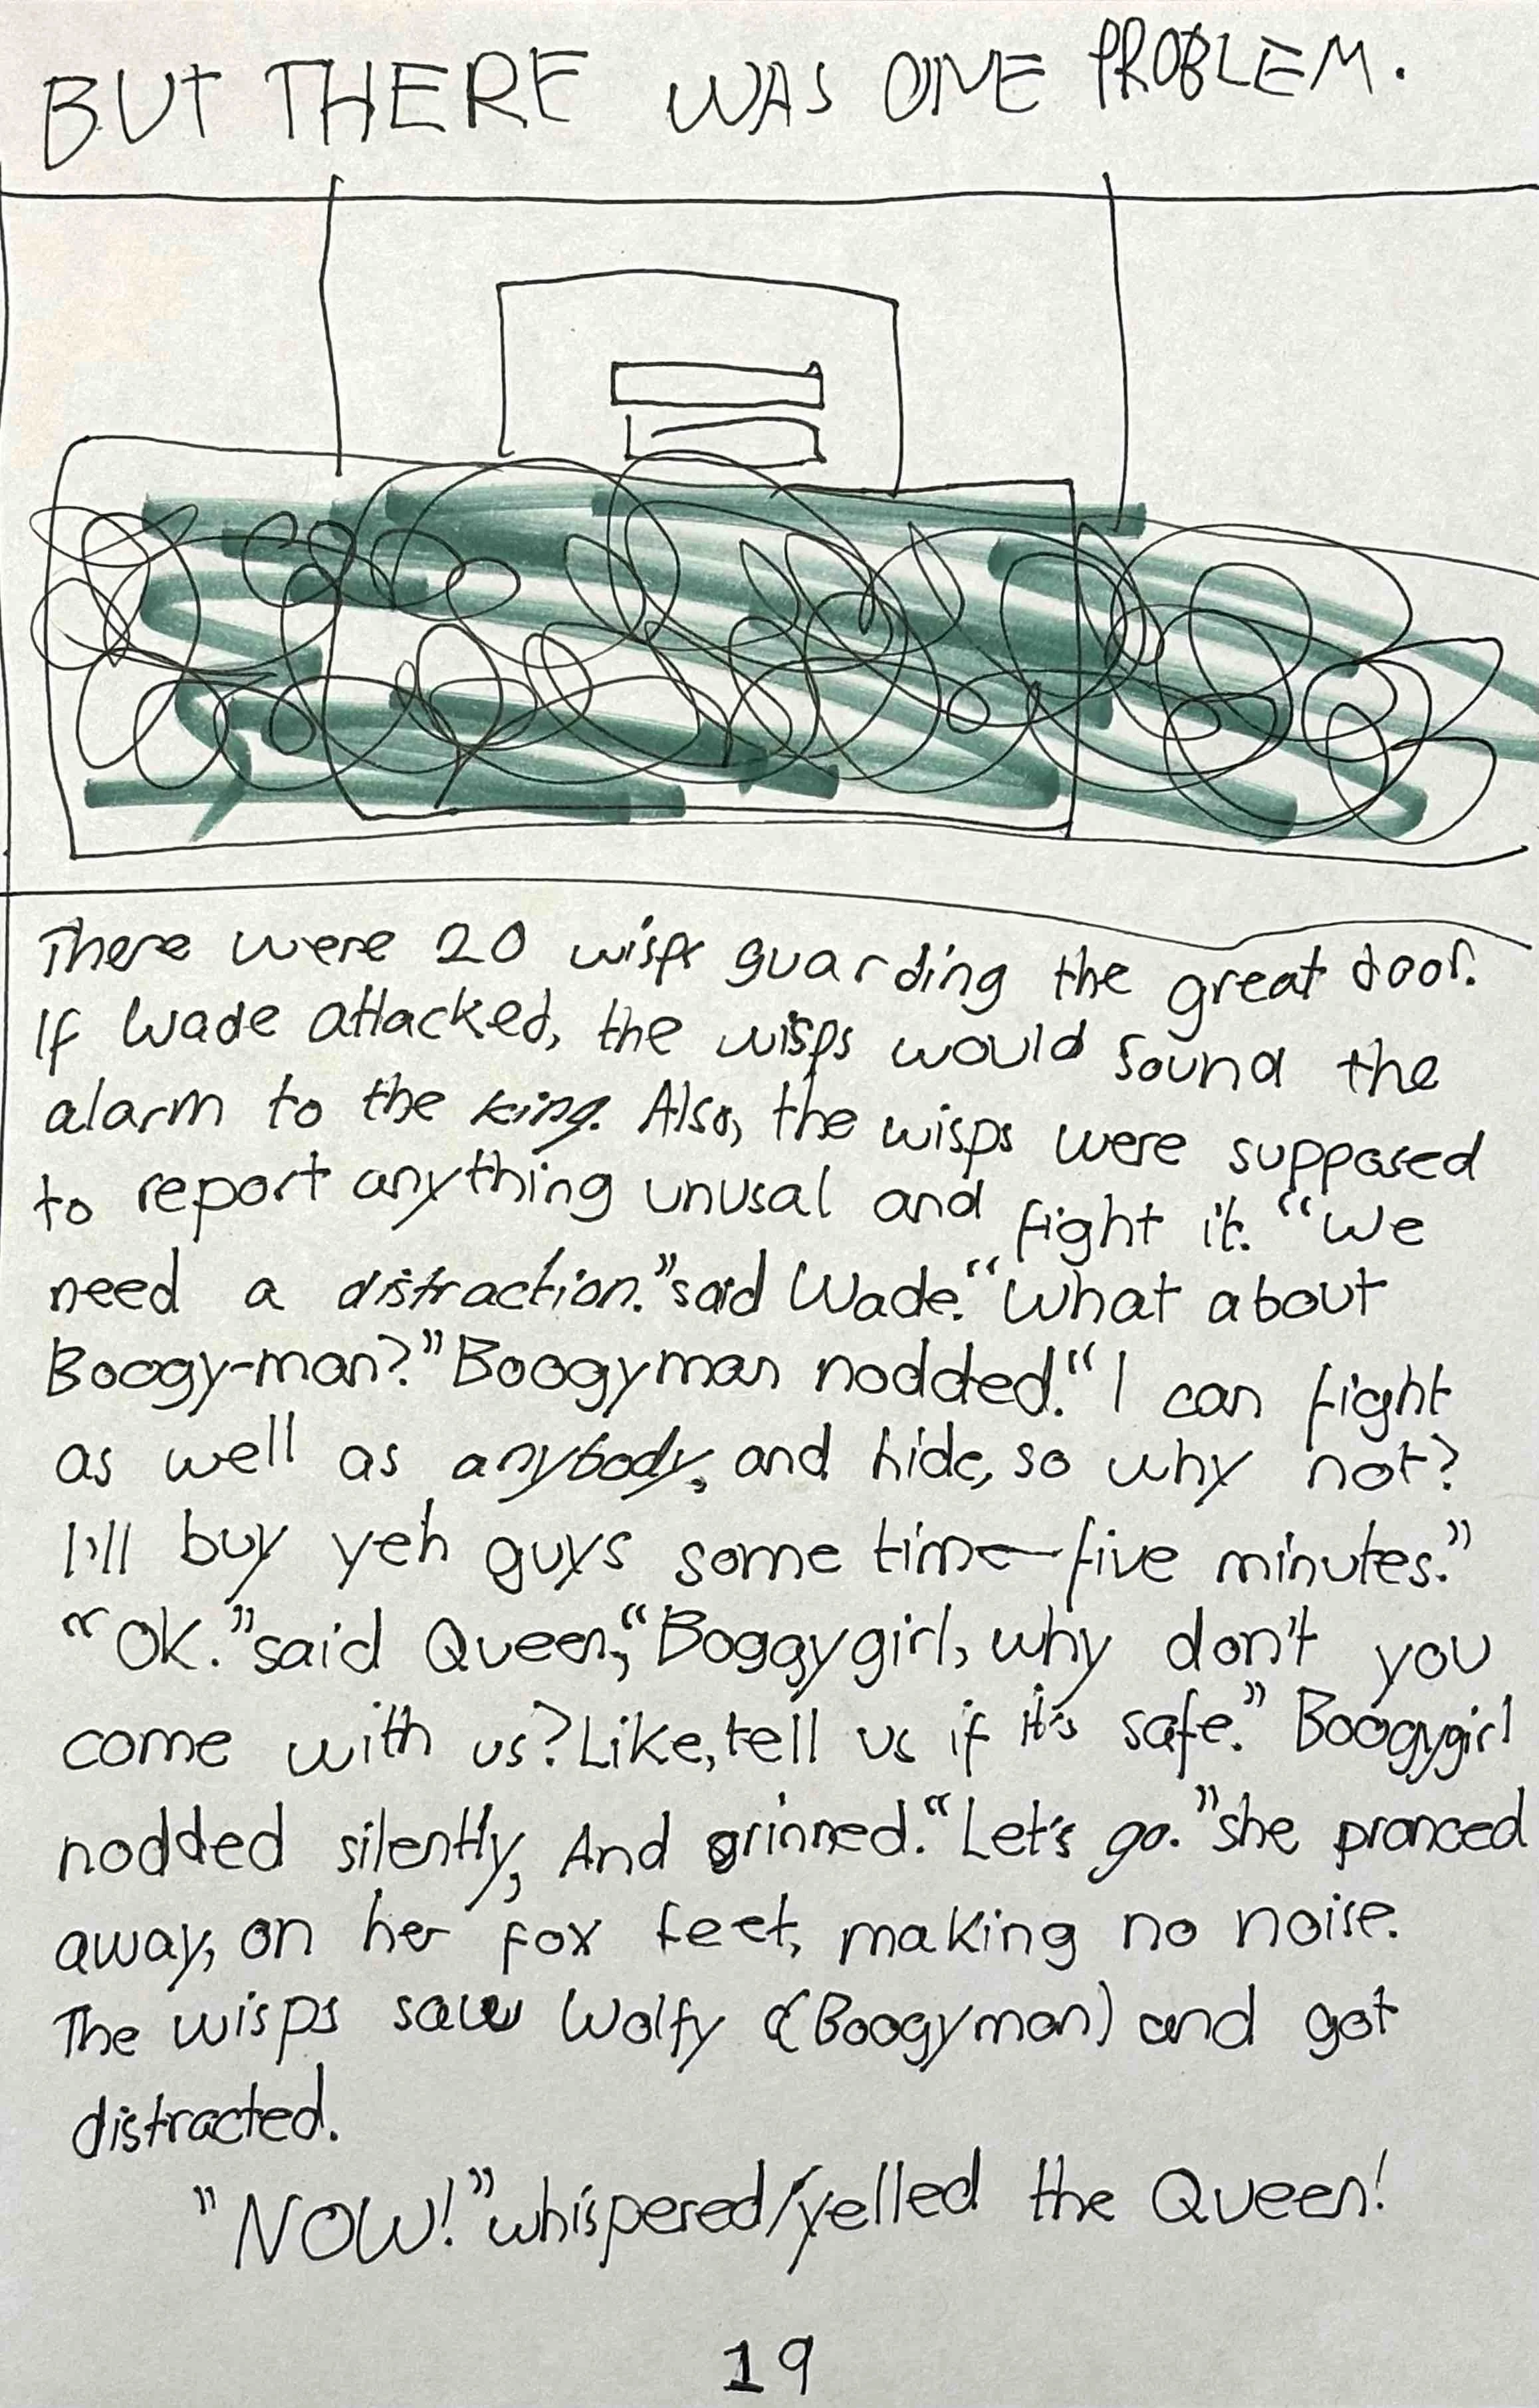 BUT THERE WAS ONE PROBLEM.
There were 20 wisps guarding the great door.
If Wade attacked, the wisps would sound the
alarm to the king. Also, the wisps were supposed
to report anything unusal and fight it. “We
need a distraction.” said Wade. “What about
Boogy-man?” Boogyman nodded. “I can fight
as well as anybody, and hide, so why not?
I'll buy yeh guys some time—five minutes.”
“OK.” said Queen, “Boggygirl, why don't you
come with us? Like, tell us if it's safe.” Boogygirl
nodded silently, And grinned. “Let's go.” she pranced
away, on her fox feet, making no noise.
The wisps saw Wolfy (Boogyman) and got
distracted.
"NOW!” whispered/yelled the Queen!
19